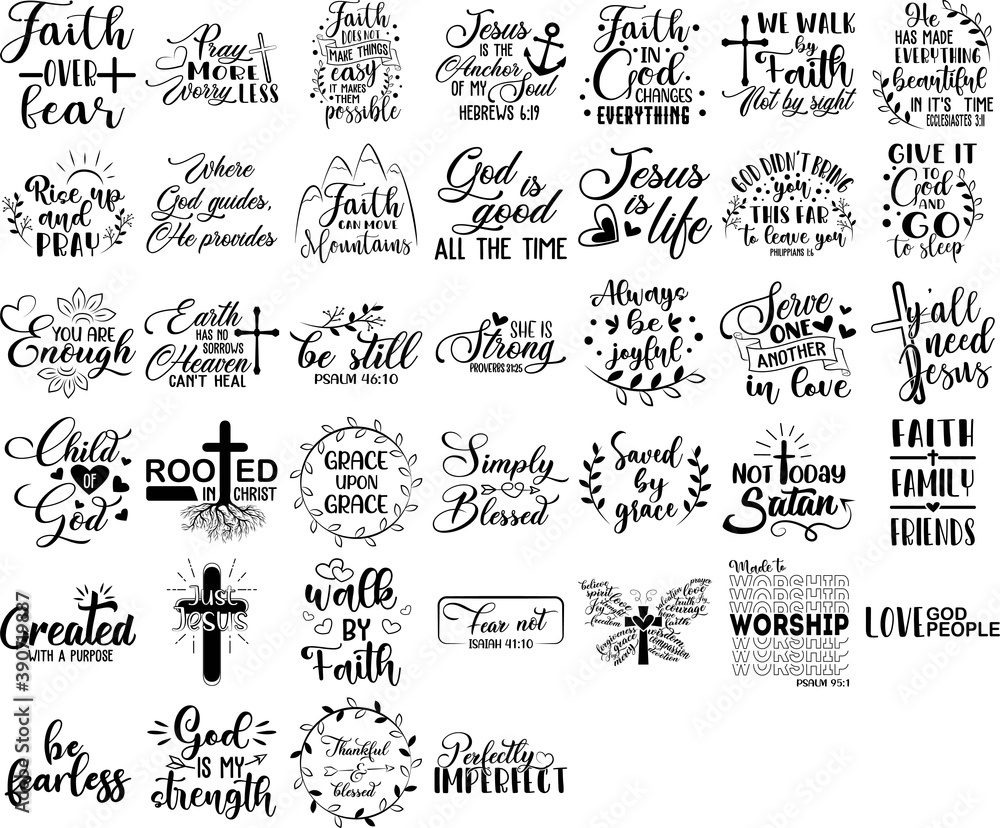 Faith
OVER
fear
Pray
MORE
Worry LESS
Faith
DOES NOT
MAKE THINGS
easy
IT MAKES
THEM
possible
Jesus
IS THE
Anchor
OF MY Soul
HEBREWS 6:19
Faith
IN
God
CHANGES
EVERYTHING
WE WALK
by
Faith
Not by sight
He
HAS MADE
EVERYTHING
beautiful
IN IT'S TIME
ECCLESIASTES 3:11
Rise up
and
PRAY
Where
God guides,
He provides
Faith
CAN MOVE
Mountains
God is
good
ALL THE TIME
Jesus
is
life
GOD DIDN'T BRING
you
THIS FAR
to leave you
PHILIPPIANS 1:6
GIVE IT
TO
God
AND
GO
to sleep
YOU ARE
Enough
Earth
HAS NO
SORROWS
Heaven
CAN'T HEAL
be still
PSALM 46:10
SHE IS
Strong
PROVERBS 31:25
Always
be
joyful
Serve
ONE
ANOTHER
in love
y'all
need
Jesus
Child
OF
God
ROOTED
IN CHRIST
GRACE
UPON
GRACE
Simply
Blessed
Saved
by
grace
NOT TODAY
Satan
FAITH
FAMILY
FRIENDS
Created
WITH A PURPOSE
Just
Jesus
walk
BY
Faith
Fear not
ISAIAH 41:10
believe
spirit
prayer
love
truth
courage
faith
forgiveness
grace
mercy
wisdom
compassion
devotion
Made to
WORSHIP
WORSHIP
WORSHIP
WORSHIP
WORSHIP
PSALM 95:1
LOVE GOD
PEOPLE
be
fearless
God
IS MY
strength
Thankful
&
blessed
Perfectly
IMPERFECT
Adobe Stock